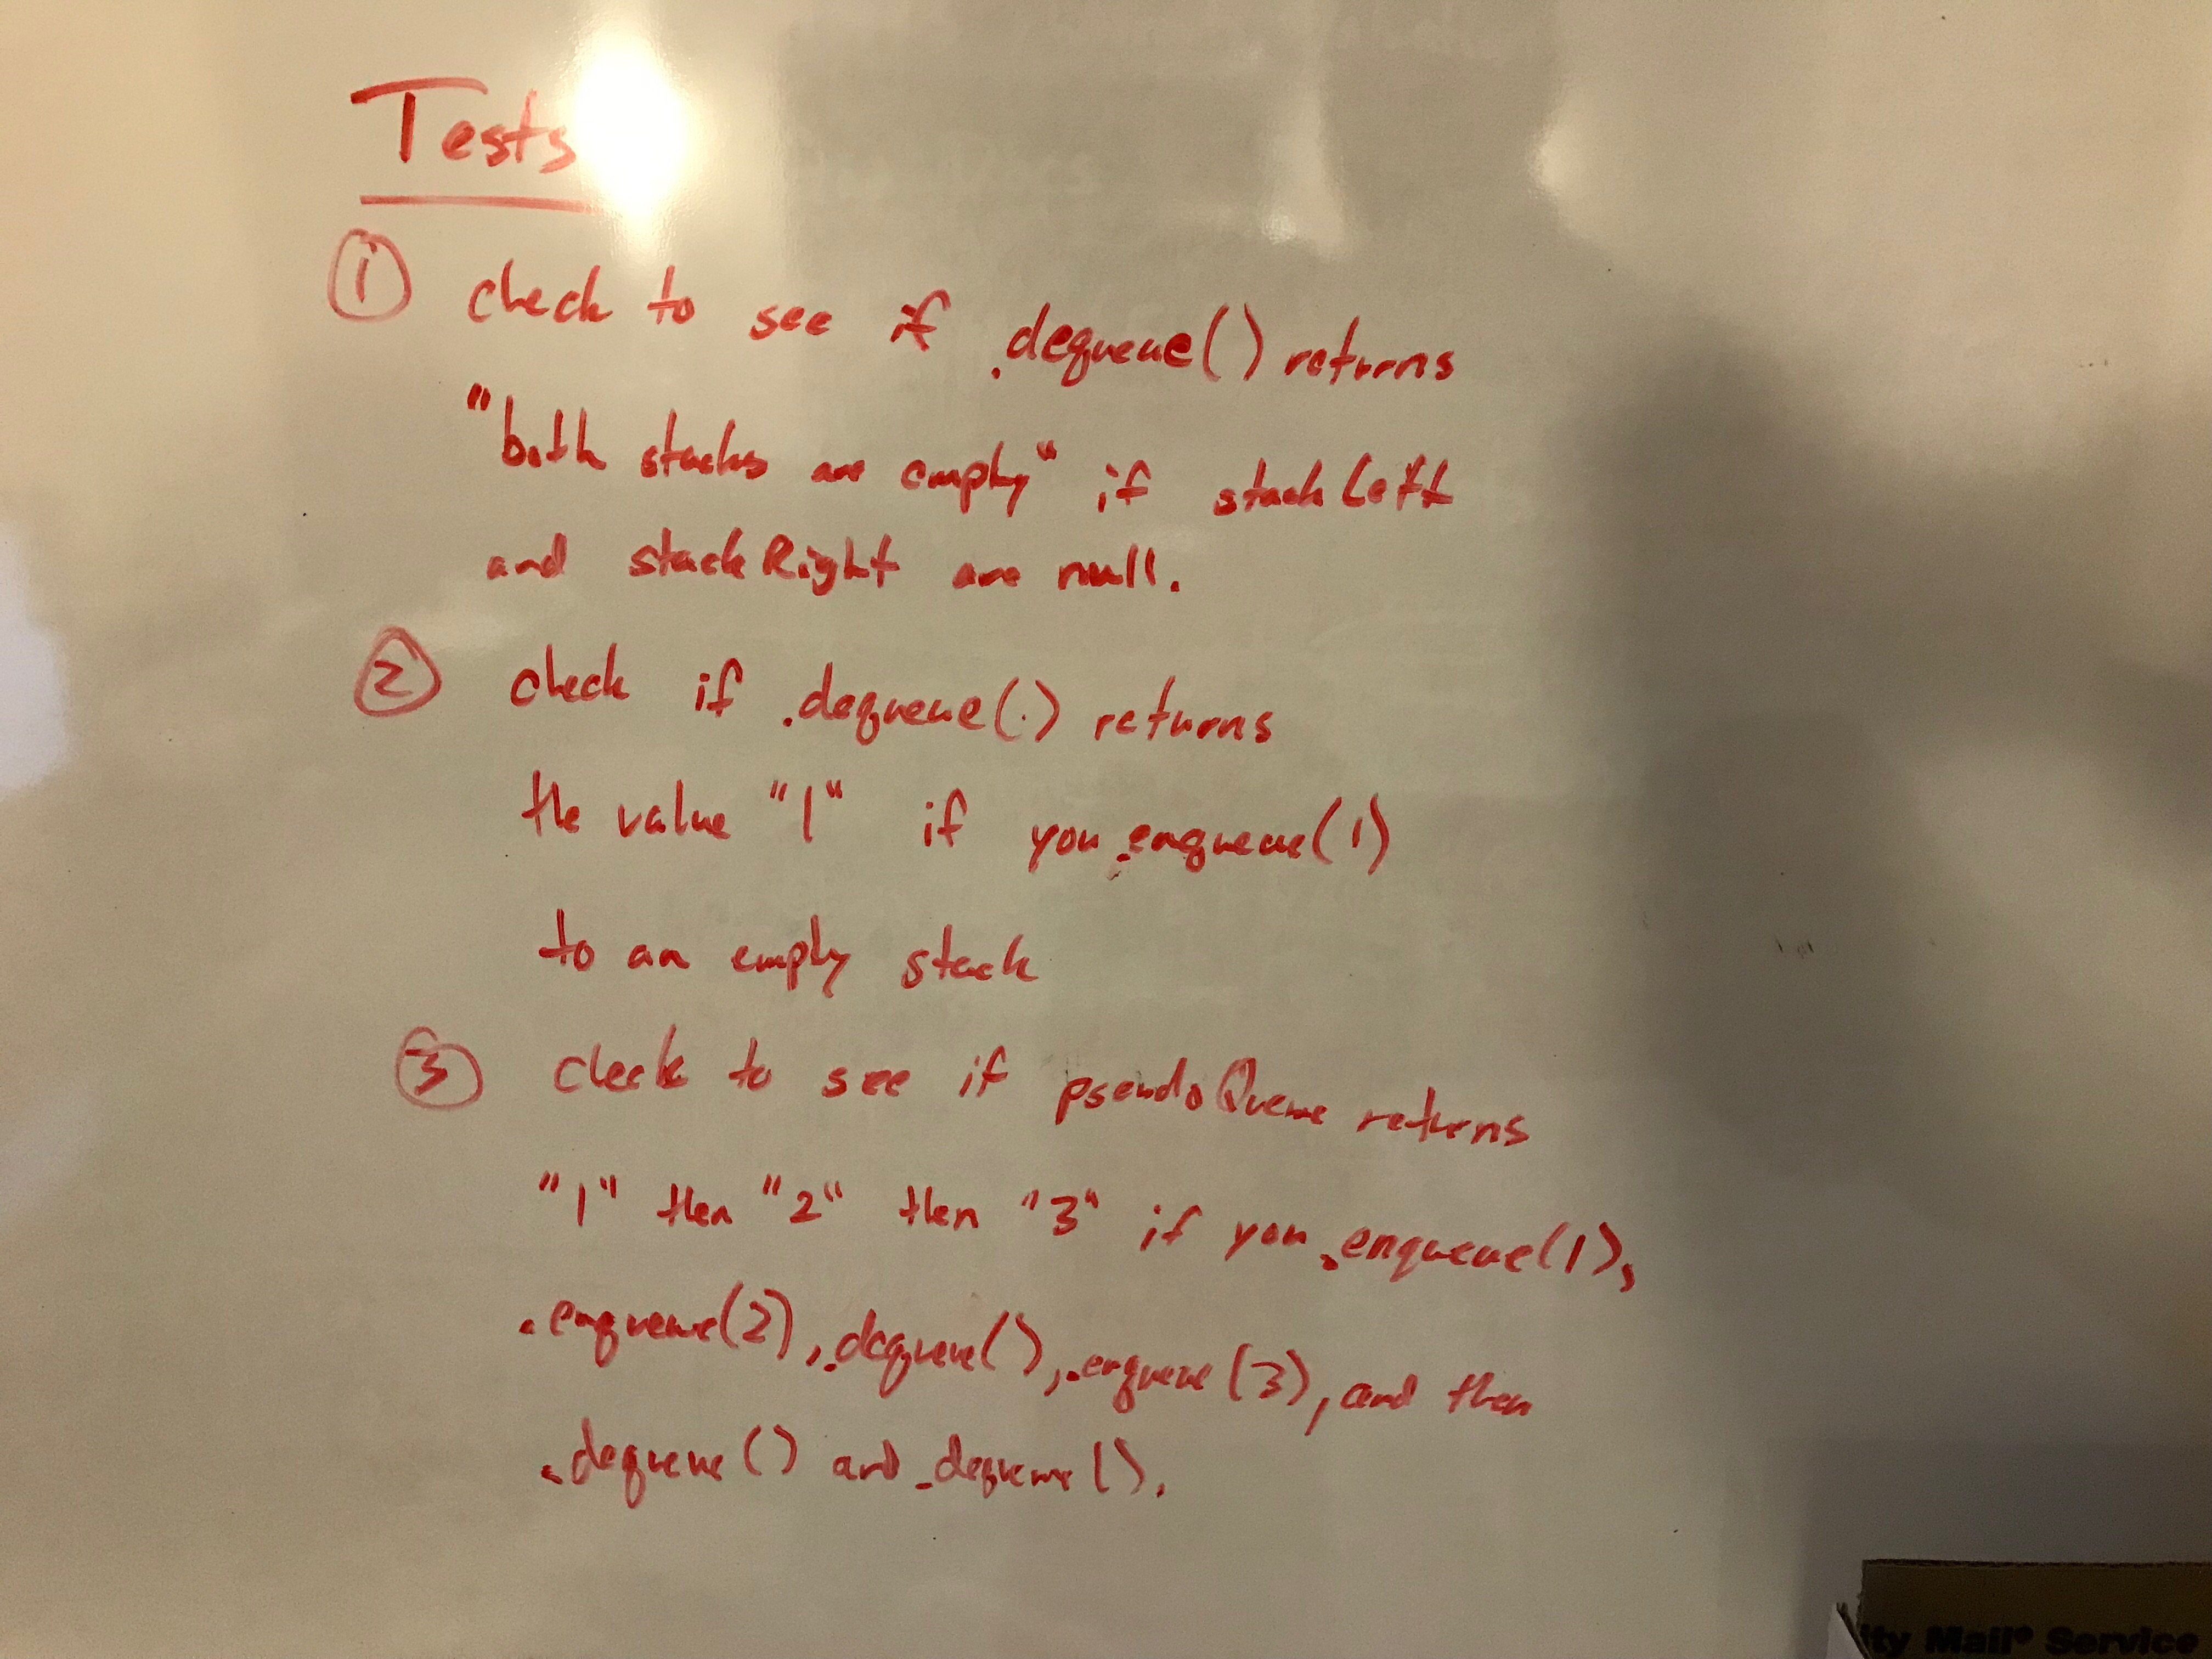 Tests
① check to see if .dequeue() returns
"both stacks are empty" if stackLeft
and stackRight are null.
② check if .dequeue() returns
the value "1" if you .enqueue(1)
to an empty stack
③ check to see if pseudoQueue returns
"1" then "2" then "3" if you .enqueue(1),
.enqueue(2), .dequeue(), .enqueue(3), and then
.dequeue() and .dequeue().
ity Mail® Service